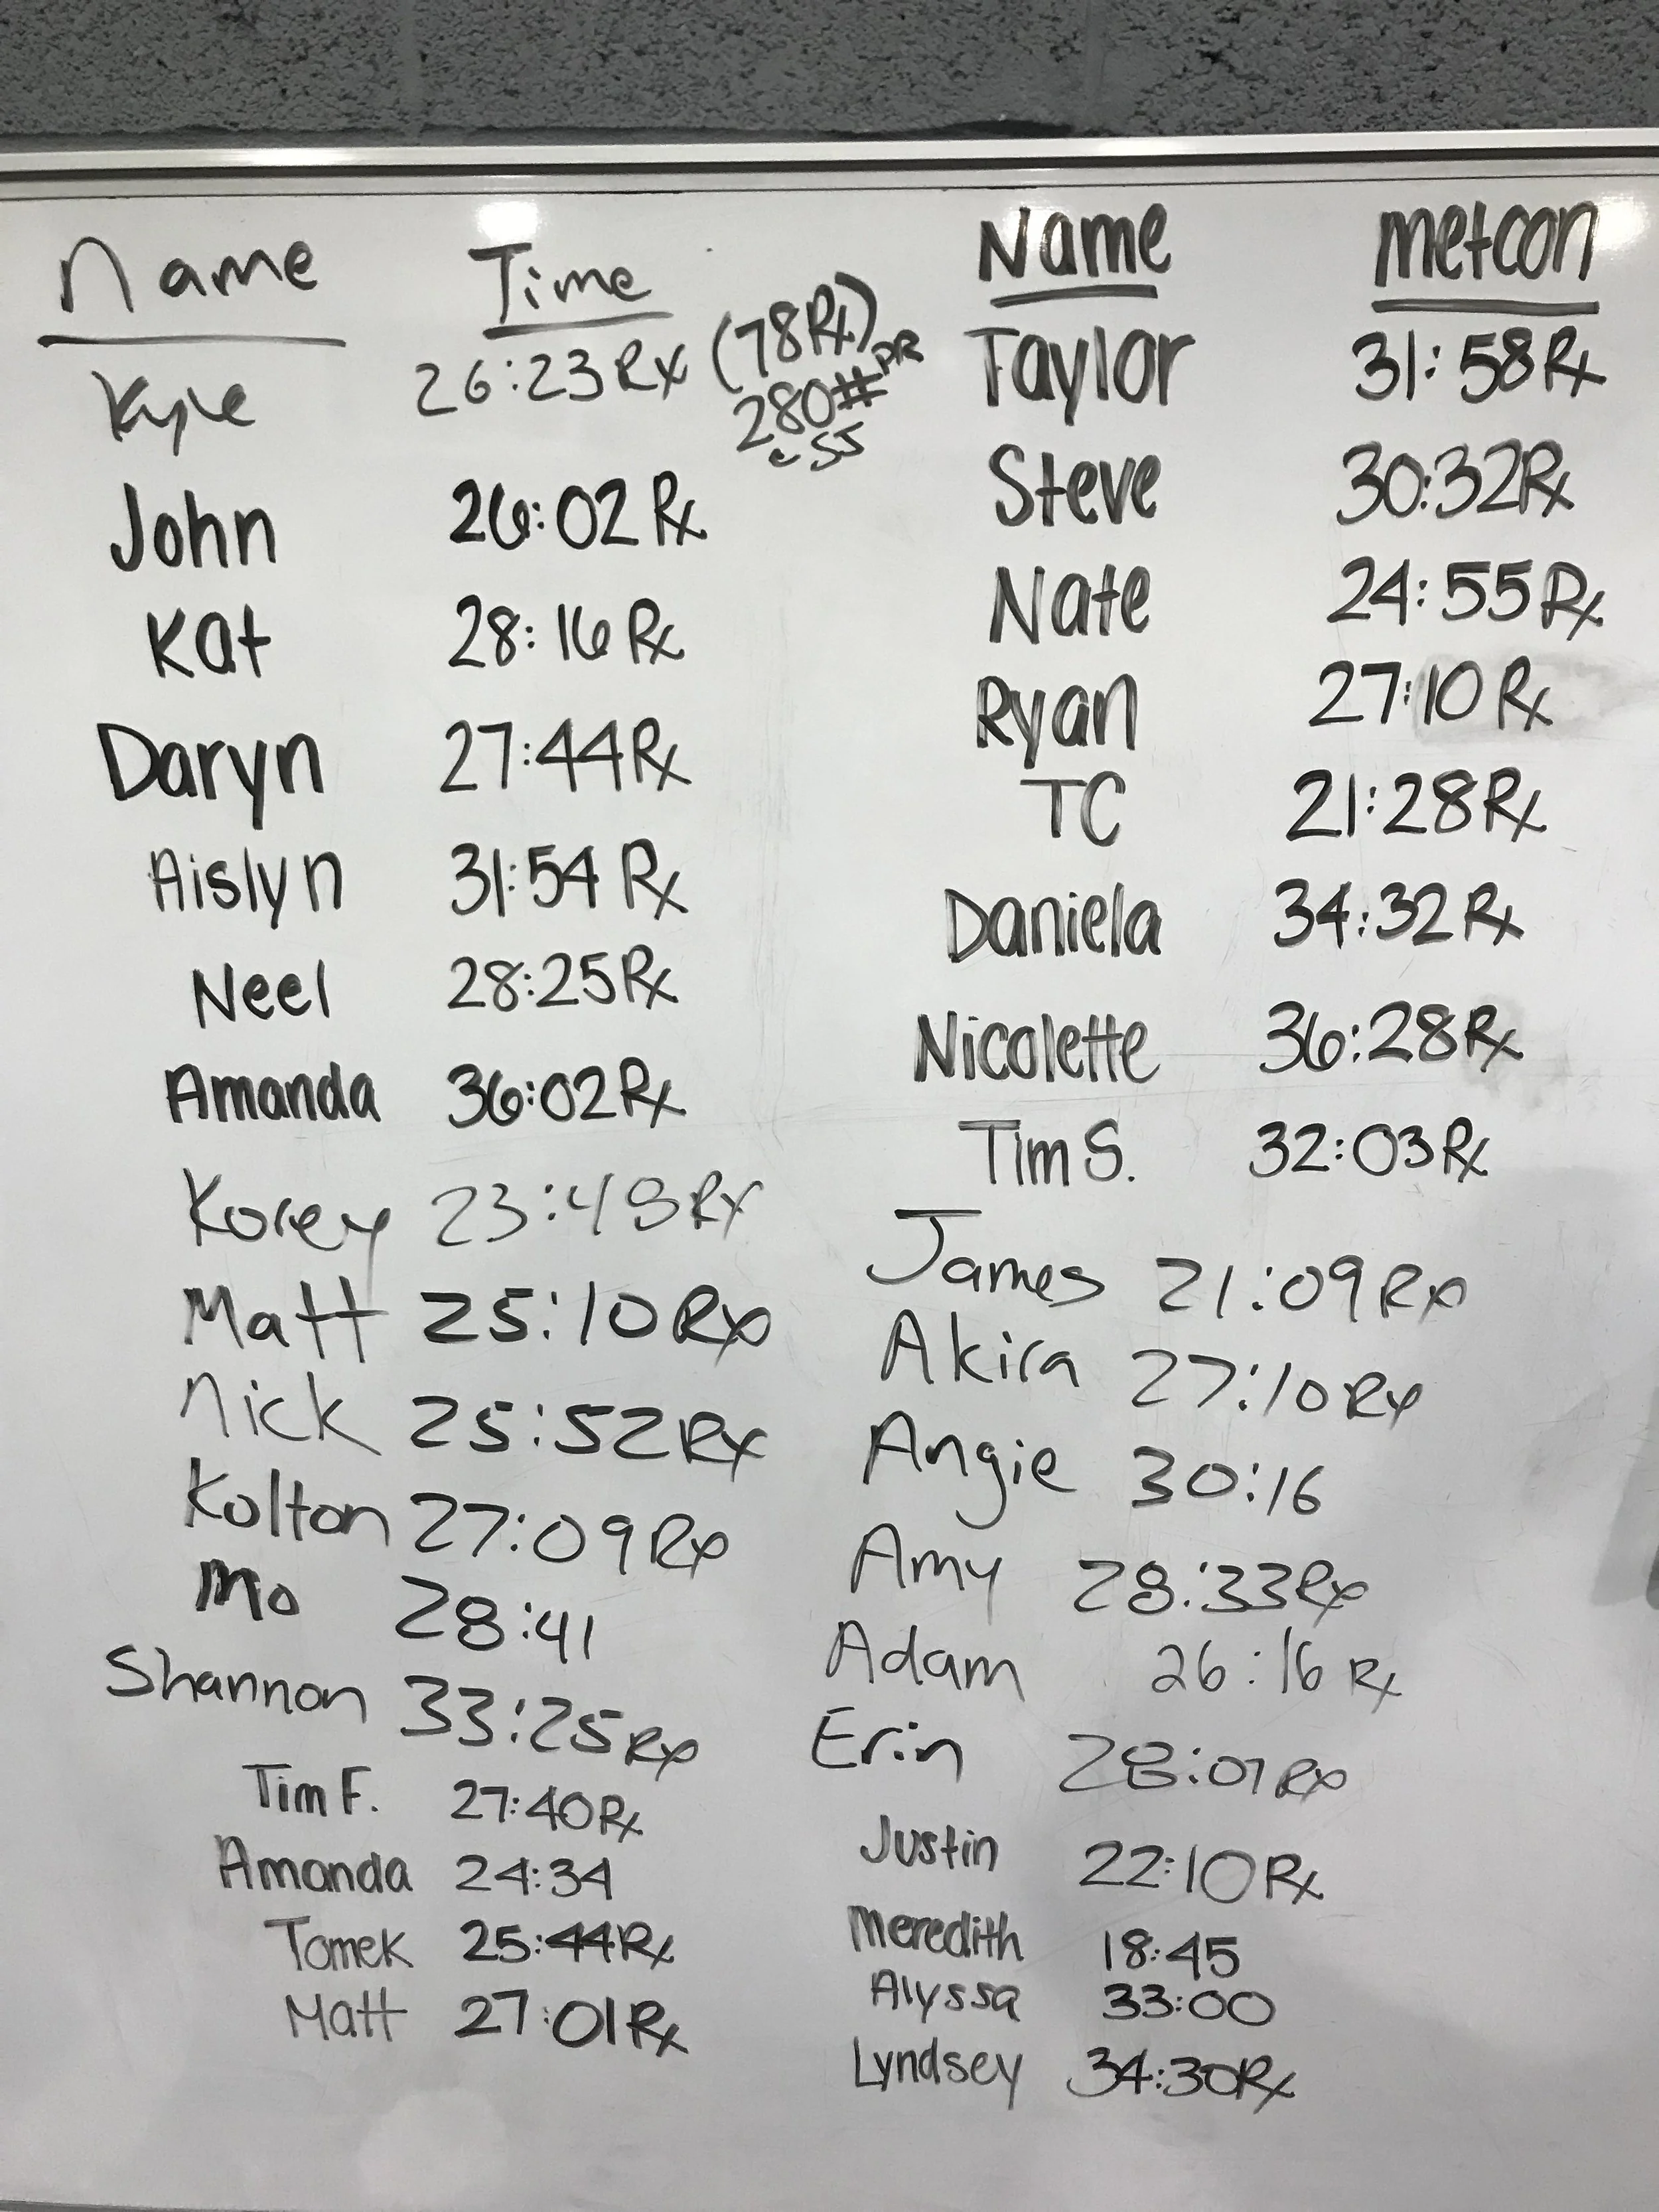 Name Time
Kyle 26:23 Rx (78Rx)
280# PR
c SJ
John 26:02 Rx
Kat 28:16 Rx
Daryn 27:44 Rx
Aislyn 31:54 Rx
Neel 28:25 Rx
Amanda 36:02 Rx
Korey 23:48 Rx
Matt 25:10 Rx
Nick 25:52 Rx
Kolton 27:09 Rx
Mo 28:41
Shannon 33:25 Rx
Tim F. 27:40 Rx
Amanda 24:34
Tomek 25:44 Rx
Matt 27:01 Rx
Name metcon
Taylor 31:58 Rx
Steve 30:32 Rx
Nate 24:55 Rx
Ryan 27:10 Rx
TC 21:28 Rx
Daniela 34:32 Rx
Nicolette 36:28 Rx
Tim S. 32:03 Rx
James 21:09 Rx
Akira 27:10 Rx
Angie 30:16
Amy 28:33 Rx
Adam 26:16 Rx
Erin 28:07 Rx
Justin 22:10 Rx
Meredith 18:45
Alyssa 33:00
Lyndsey 34:30 Rx